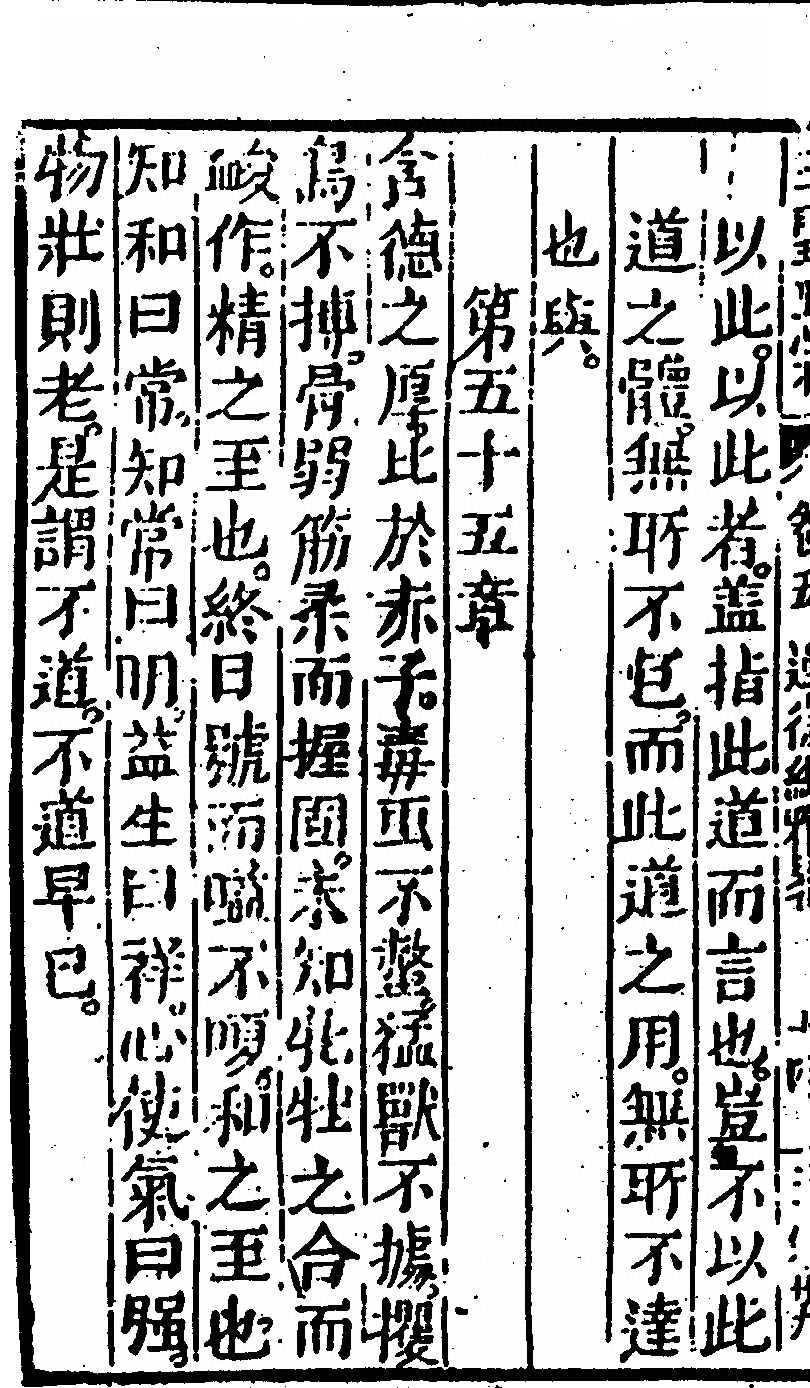 以此。以此者。蓋指此道而言也。豈不以此
道之體。無所不包。而此道之用。無所不達
也與。
第五十五章
含德之厚。比於赤子。毒虫不螫。猛獸不據。攫
鳥不搏。骨弱筋柔而握固。未知牝牡之合而
峻作。精之至也。終日號而嗌不嗄。和之至也。
知和曰常。知常曰明。益生曰祥。心使氣曰強。
物壯則老。是謂不道。不道早已。